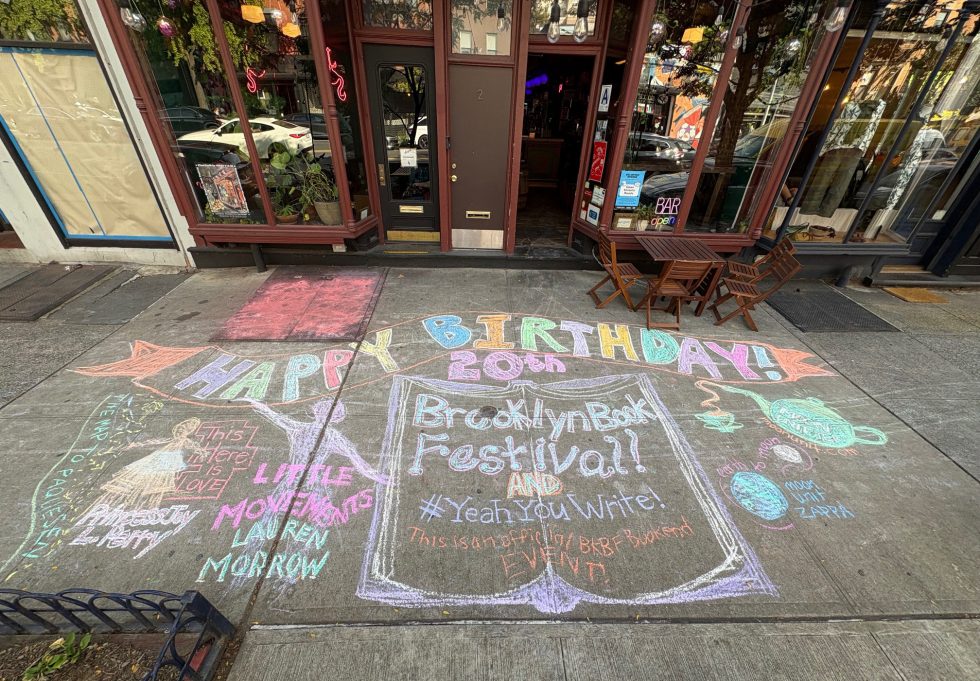 2
BAR
open
HAPPY BIRTHDAY!
20th
BrooklynBook
Festival!
AND
#YeahYouWrite!
This is an official BKBF Bookend
EVENT!
This
in Here
is LOVE
Princess Joy
L. Perry
LITTLE
MOVEMENTS
LAUREN
MORROW
Earth to moon
moon
Unit
ZAPPA